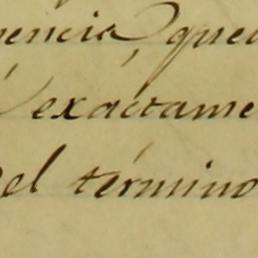 encia, que
exáctame
el término